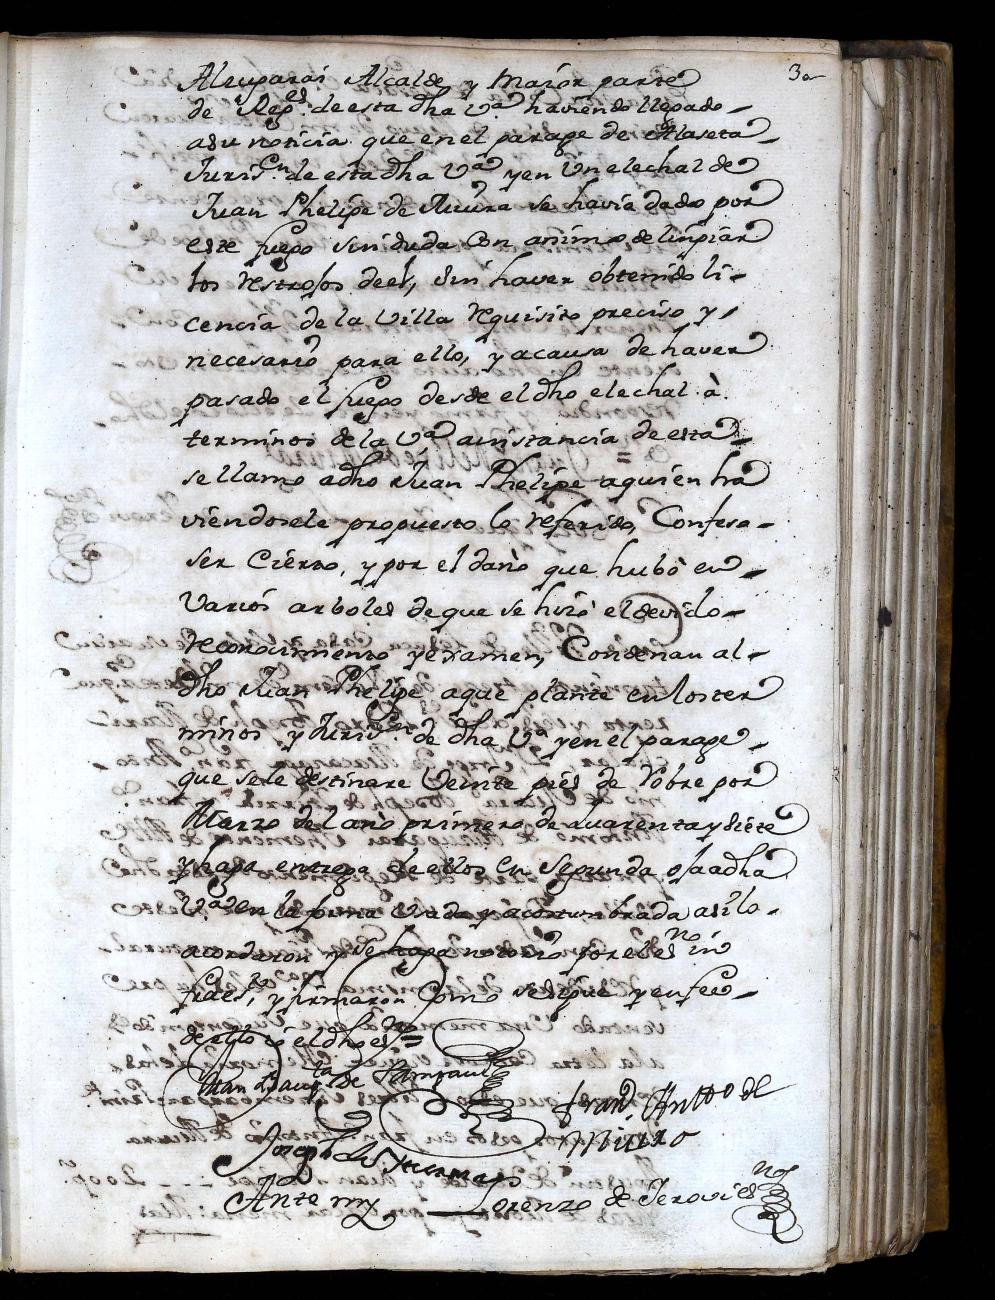 3
Alcuparai Alcalde y Maior parte
de Reg.es de esta dha V.a haviendo llegado
a su noticia que en el parage de Alaseta
Juris.on de esta dha V.a y en Un elechal de
Juan Phelipe de se havia dado por
este fuego sin duda con animo de linpiar
los rrestrojos de el, sin haver obtenido li-
cencia de la Villa rrequisito preciso y
necesario para ello, y a causa de haver
pasado el fuego desde el dho elechal à
terminos de la V.a a instancia de esta
se llamo a dho Juan Phelipe a quien ha
viendosele propuesto lo rreferido, Confesa
ser Cierto, y por el daño que hubò en
Varios arboles de que se hizo el devido
rreconocimiento y examen, Condenan al
dho Juan Phelipe a que plante en los ter
minos y Juris.on de dha V.a y en el parage
que se le destinare Veinte pies de rrobre por
Marzo del año primero de quarenta y siete
y haga entrega de ellos en segunda oja a dha
V.a en la forma Usada y acostumbrada asi lo
acordaron y se haga notorio por el es.no in
fraes.to y firmaron Como se sigue y en fee
de ello io el dho es.no =
Juan Baup.ta de
Fran.co Antto de
Joseph de
Ante my Lorenzo de